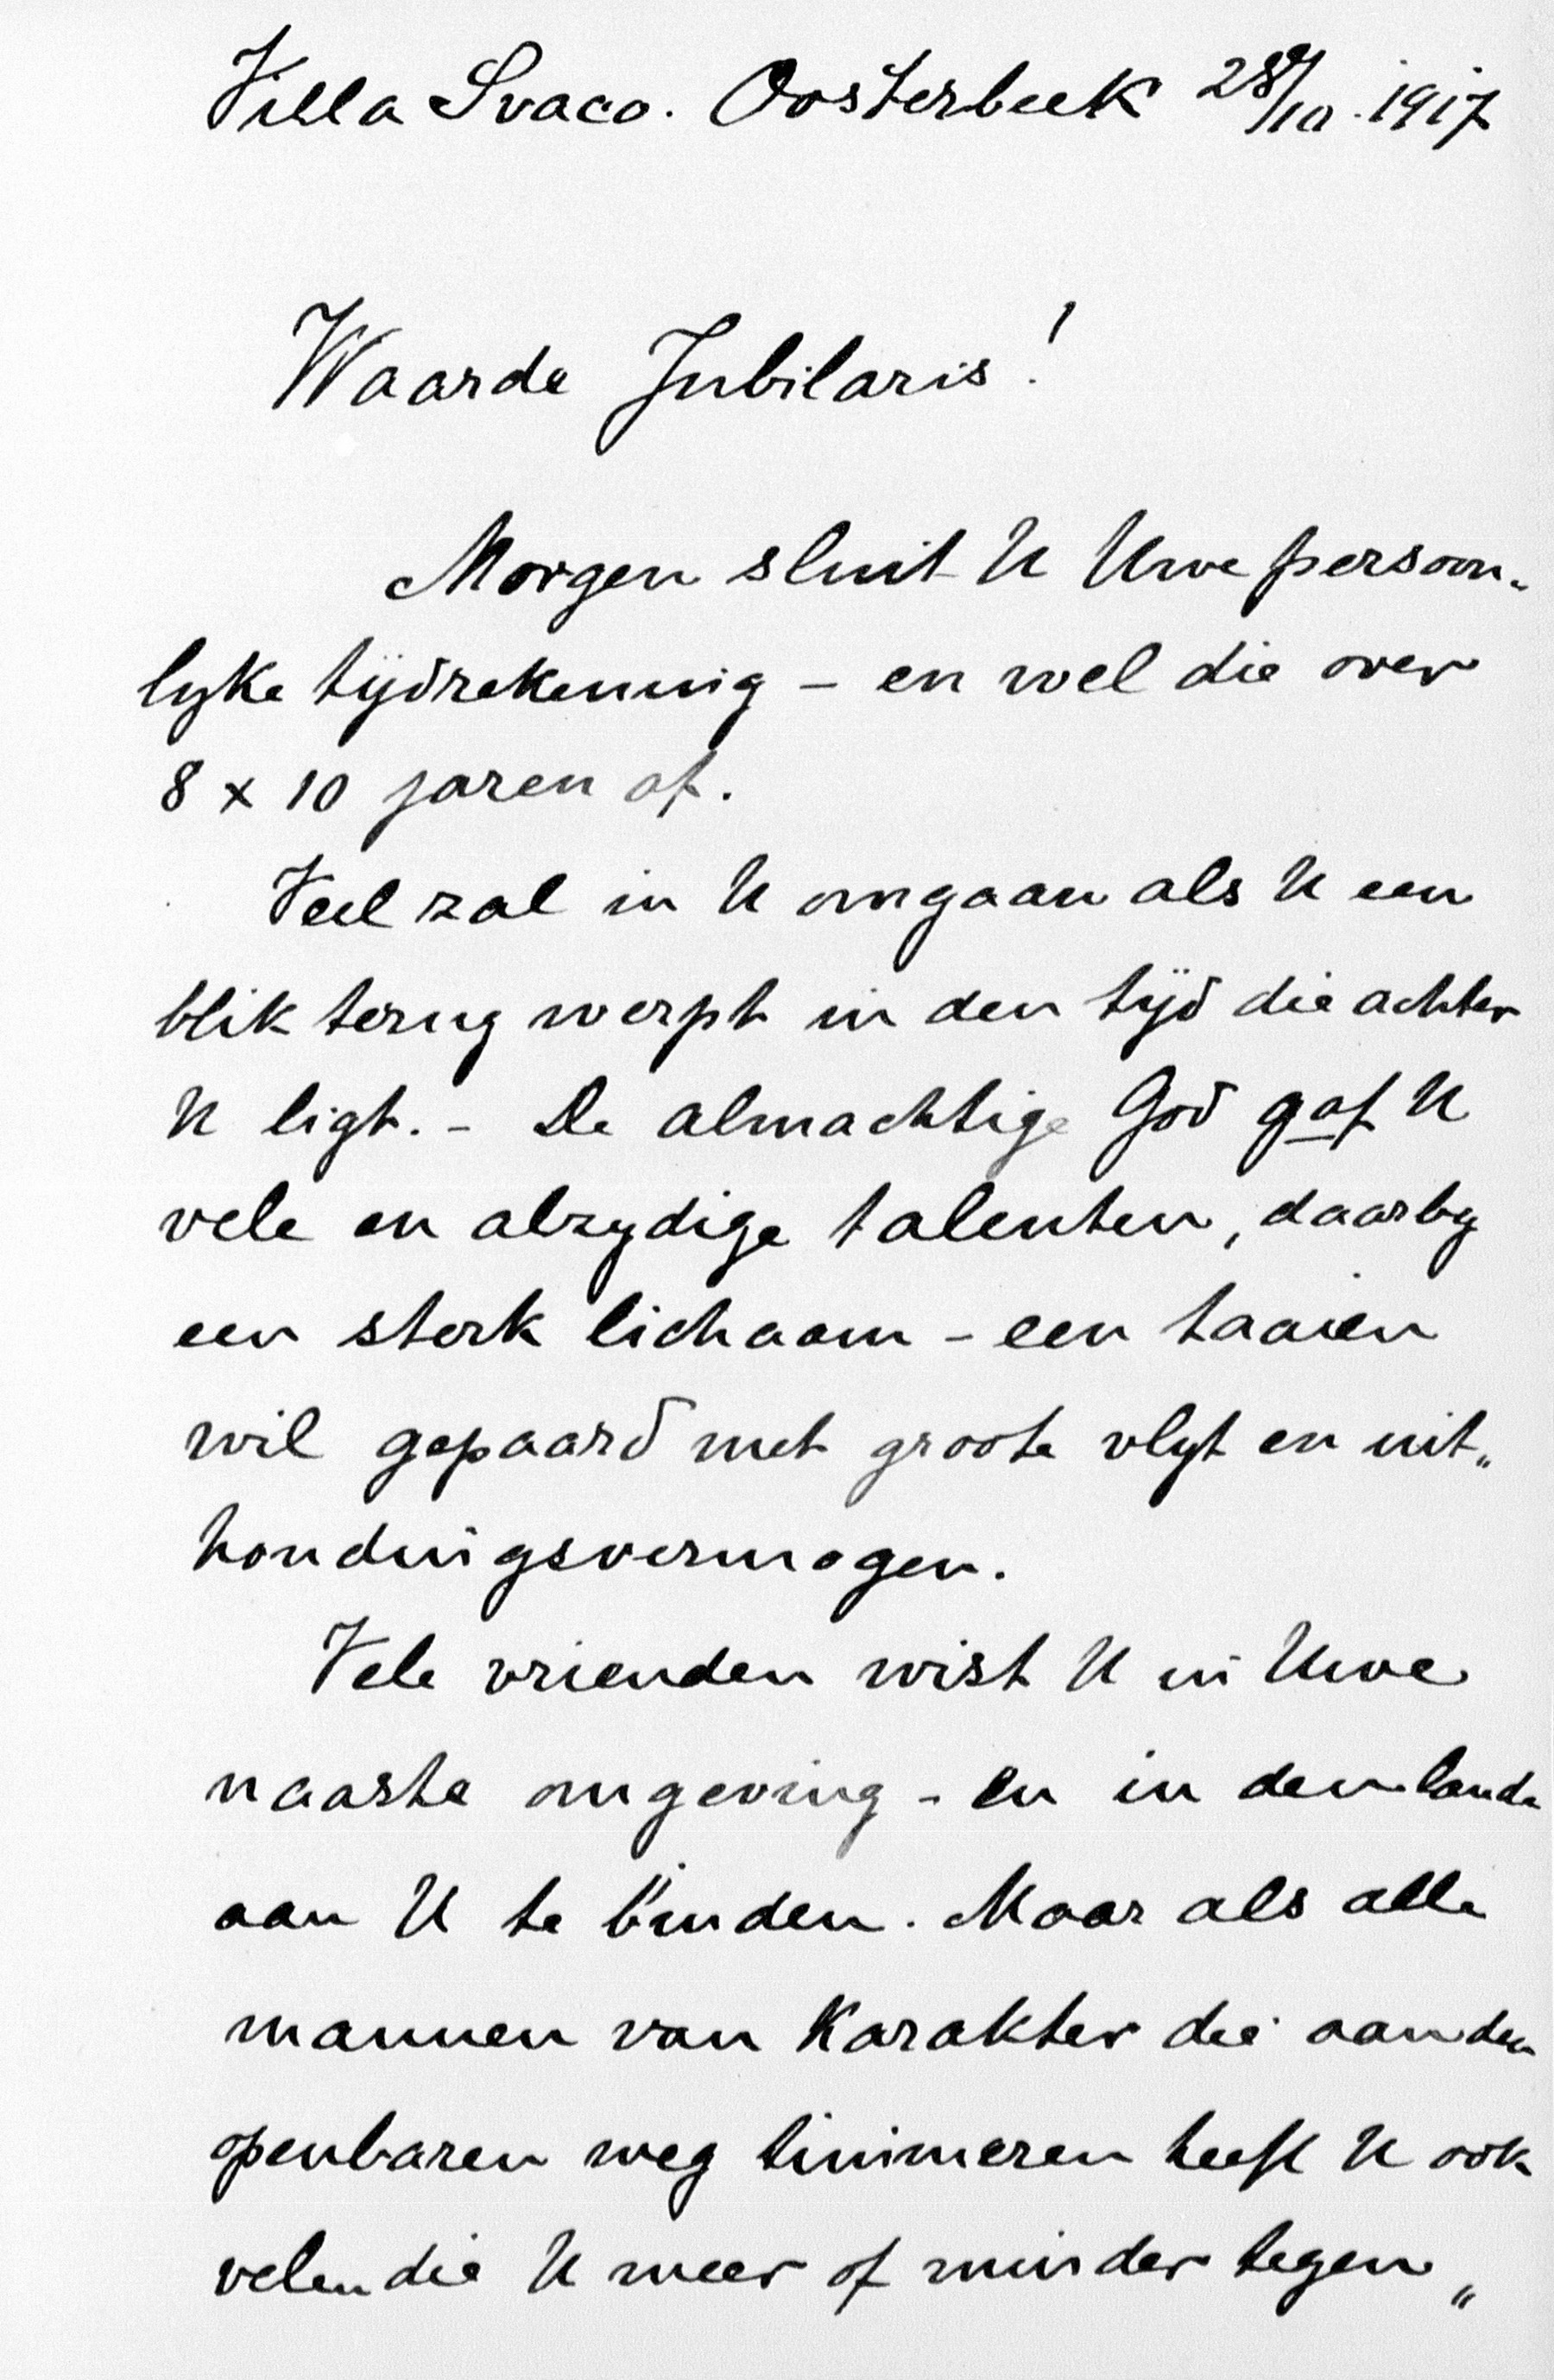 Villa Svaco. Oosterbeek 28/10. 1917
Waarde Jubilaris!
Morgen sluit U Uwe persoon-
lyke tijdrekening – en wel die over
8 x 10 jaren af.
Veel zal in U omgaan als U een
blik terug werpt in den tijd die achter
U ligt. – De almachtige God gaf U
vele en alzydige talenten, daarby
een sterk lichaam – een taaien
wil gepaard met groote vlyt en uit„
houdingsvermogen.
Vele vrienden wist U in Uwe
naaste omgeving – en in den lande
aan U te binden. Maar als alle
mannen van Karakter die aan den
openbaren weg timmeren heeft U ook
velen die U meer of minder tegen„